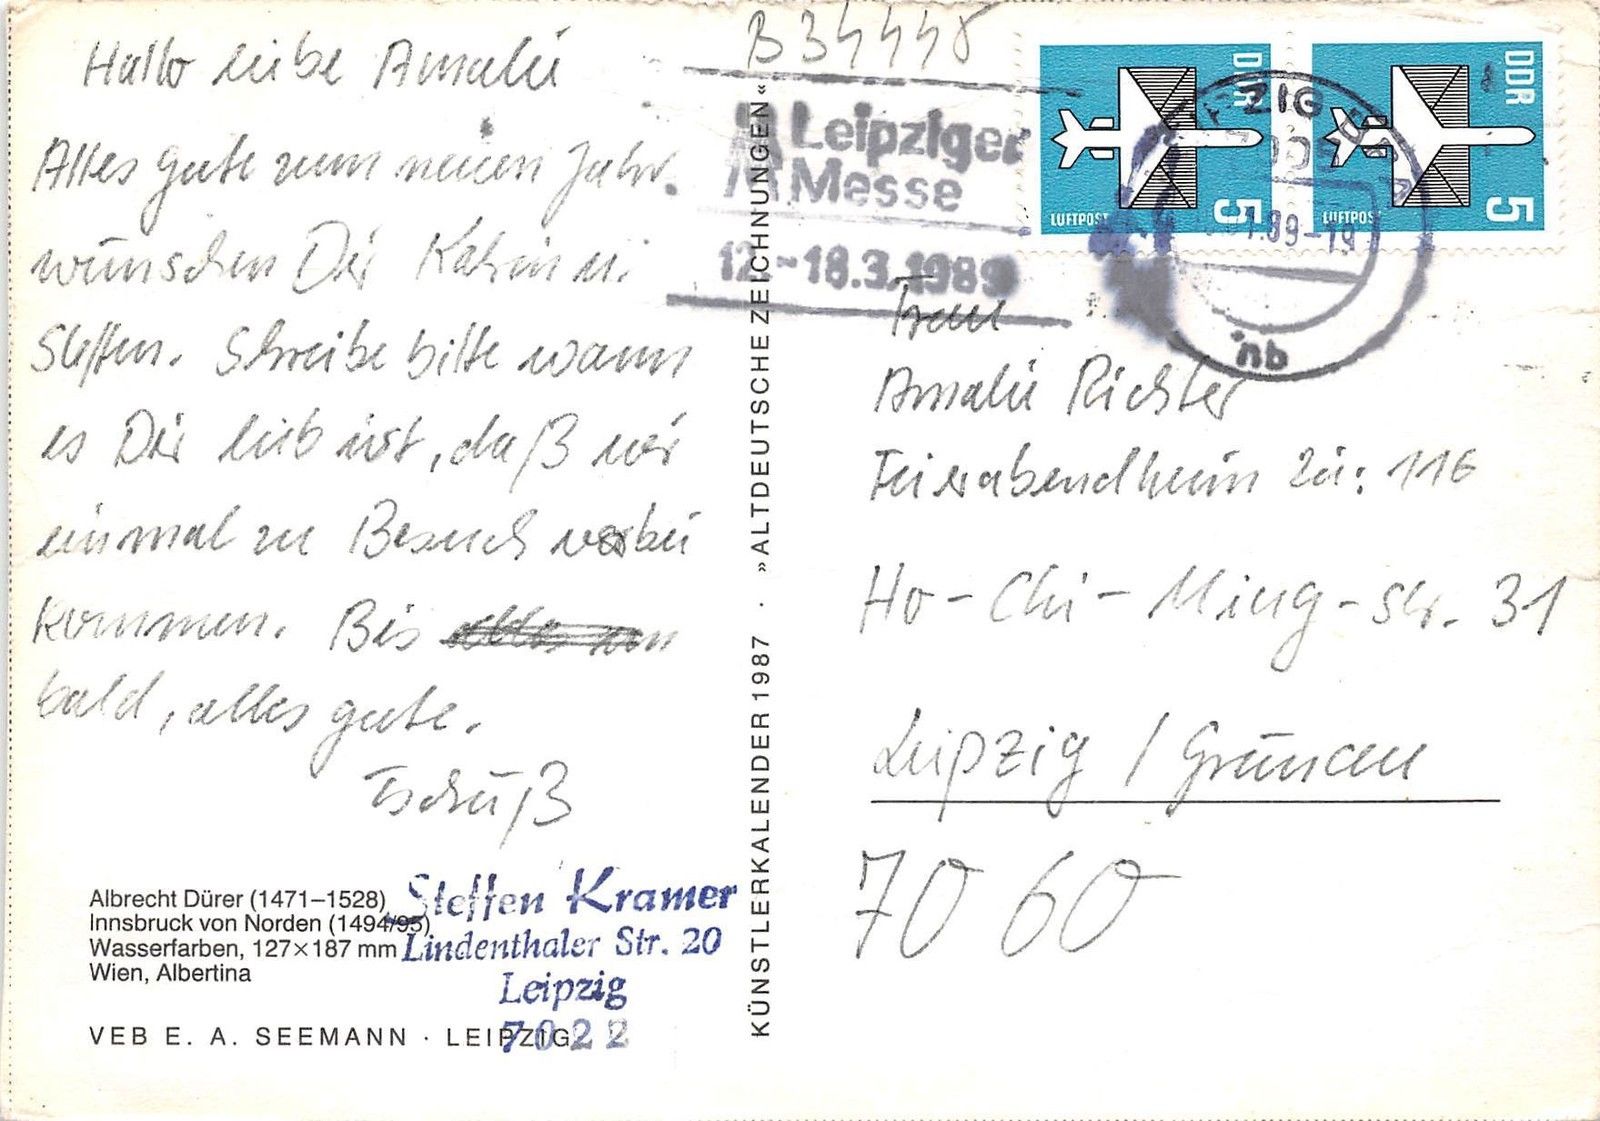 Hallo liebe Amalie
Alles gute zum neuen Jahr.
wünschen Dir Katrin u.
Steffen. Schreibe bitte wann
es Dir lieb ist, daß wir
einmal zu Besuch vorbei
kommen. Bis
bald, alles gute.
Tschüß
Albrecht Dürer (1471–1528)
Innsbruck von Norden (1494/95)
Wasserfarben, 127×187 mm
Wien, Albertina
VEB E. A. SEEMANN · LEIPZIG
Steffen Kramer
Lindenthaler Str. 20
Leipzig
7022
KÜNSTLERKALENDER 1987 · »ALTDEUTSCHE ZEICHNUNGEN«
B34445
Leipziger
Messe
12.-18.3.1989
DDR
LUFTPOST
5
DDR
LUFTPOST
5
ZIG
89-19
nb
Frau
Amalie Richter
Feierabendheim Zi: 116
Ho-Chi-Ming-Str. 31
Leipzig / Grünau
7060